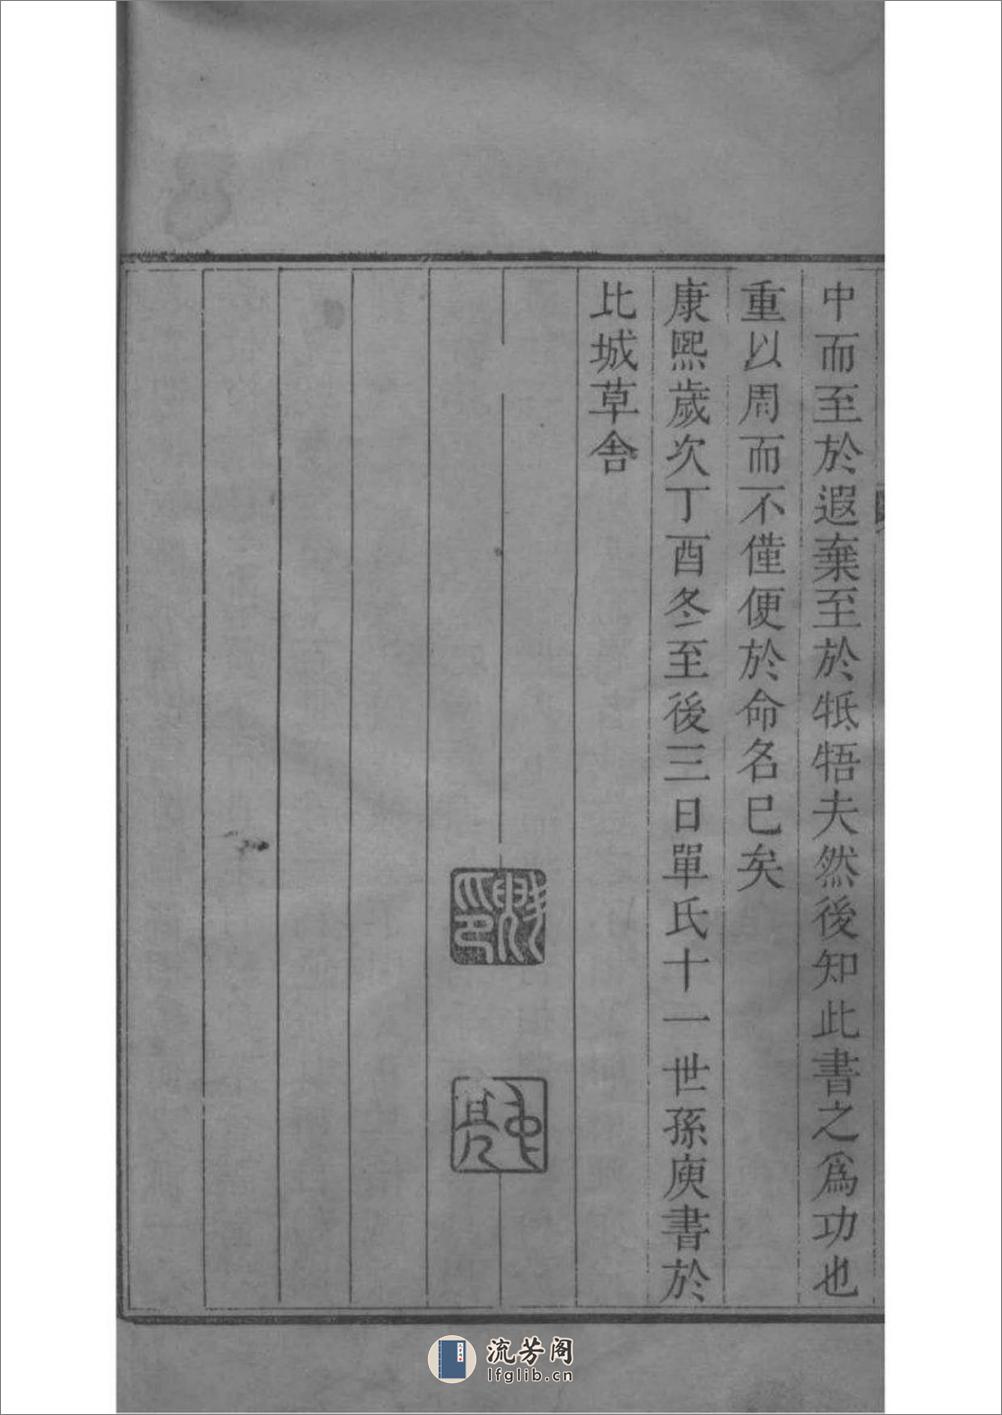 中而至於遐棄至於牴牾夫然後知此書之爲功也
重以周而不僅便於命名巳矣
康熙歲次丁酉冬至後三日單氏十一世孫庾書於
比城草舍
流芳阁
lfglib.cn